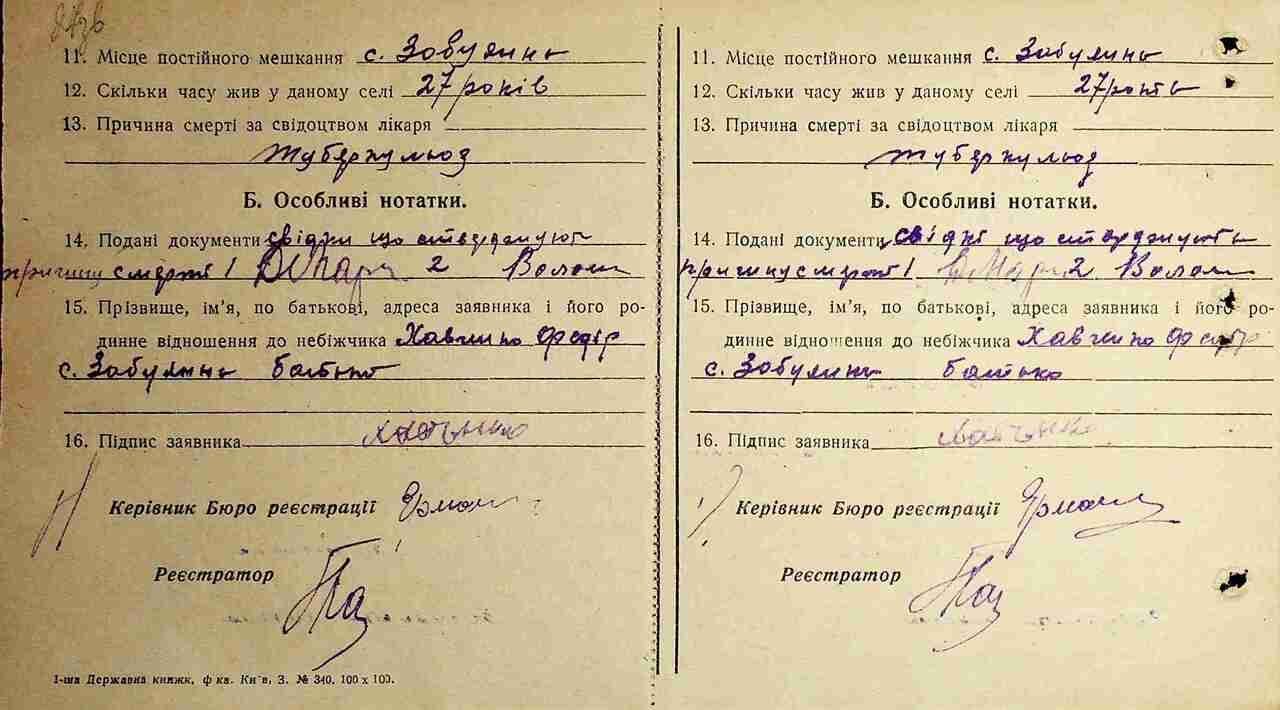 11. Місце постійного мешкання с. Зобулинь
12. Скільки часу жив у даному селі 27 років
13. Причина смерті за свідоцтвом лікаря
туберкульоз
Б. Особливі нотатки.
14. Подані документи свідки що стверджують
причину смерті 1 2 Волош
15. Прізвище, ім’я, по батькові, адреса заявника і його ро-
динне відношення до небіжчика Хавчико Федір
с. Зобулинь батько
16. Підпис заявника
Керівник Бюро реєстрації
Реєстратор
1-ша Державна книжк. ф-ка. Київ, З. № 340. 100 х 100.
11. Місце постійного мешкання с. Зобулинь
12. Скільки часу жив у даному селі 27 років
13. Причина смерті за свідоцтвом лікаря
туберкульоз
Б. Особливі нотатки.
14. Подані документи свідкі що стверджують
причину смерті 1 2 Волош
15. Прізвище, ім’я, по батькові, адреса заявника і його ро-
динне відношення до небіжчика Хавчико Федір
с. Зобулинь батько
16. Підпис заявника
Керівник Бюро реєстрації
Реєстратор